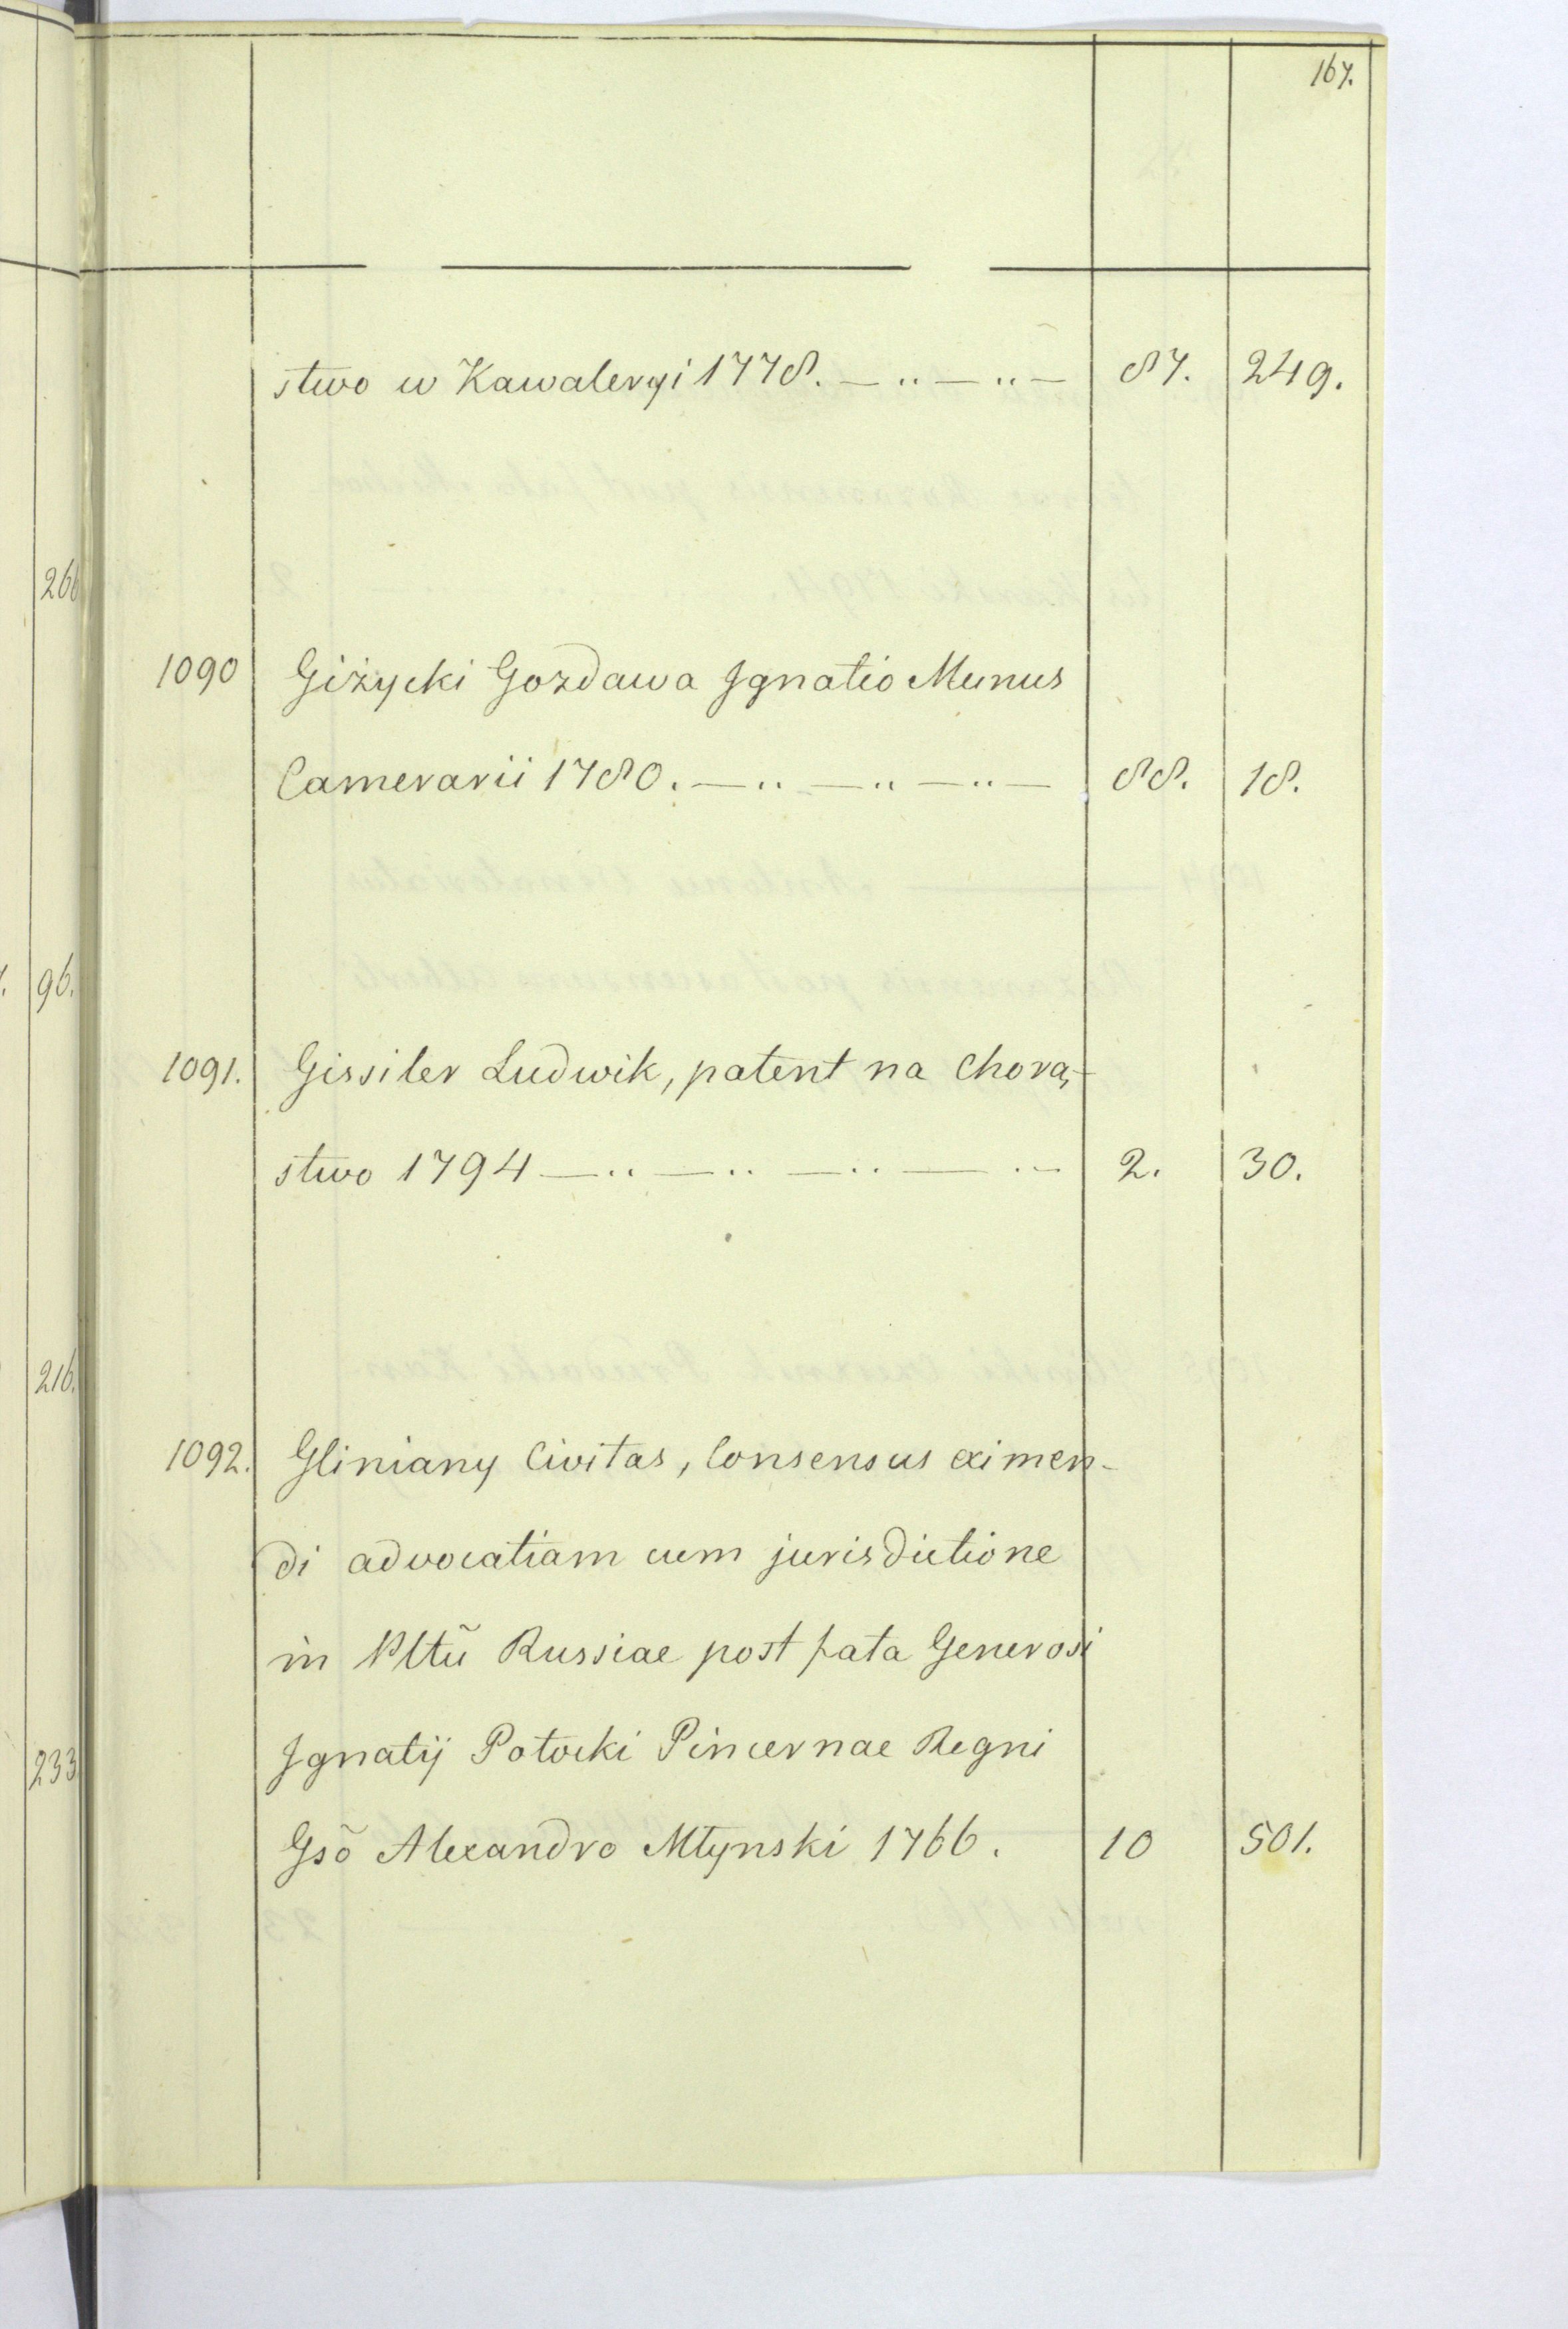 167.
stwo w Kawaleryi 1778. — " — " — 87. 249.
266
1090 Giżycki Gozdawa Ignatio Munus
Camerarii 1780. — " — " — " — 88. 18.
96.
1091. Gissiler Ludwik, patent na Chorą-
stwo 1794 — " — " — " — " — 2. 30.
216.
1092. Gliniany Civitas, Consensus eximen-
di advocatiam cum jurisdictione
in Pltũ Russiae post fata Generosi
Ignatij Potocki Pincernae Regni
233
Gsõ Alexandro Młynski 1766. 10 501.